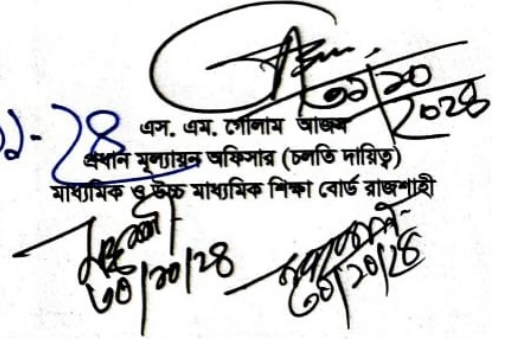 ৩১|১০
২০২৪
এস. এম. গোলাম আজম
প্রধান মূল্যায়ন অফিসার (চলতি দায়িত্ব)
মাধ্যমিক ও উচ্চ মাধ্যমিক শিক্ষা বোর্ড রাজশাহী
৩০|১০|২৪
৩০|১০|২৪